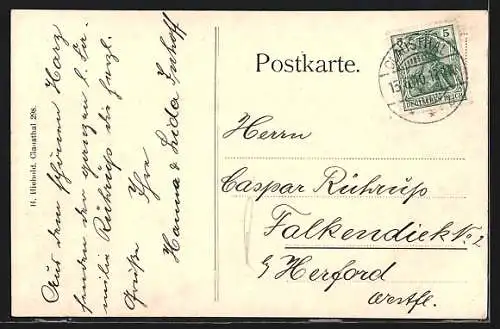 Postkarte.
CLAUSTHAL
5
DEUTSCHES REICH
Herrn
Caspar Rührup
Falkendiek No 2
b/ Herford
Westfl.
Aus dem schönen Harz
senden der ganzen l. Fa-
milie Rührup die herzl.
Grüße Ihre
Hanna & Lida Imhoff
H. Hiebold, Clausthal 298.